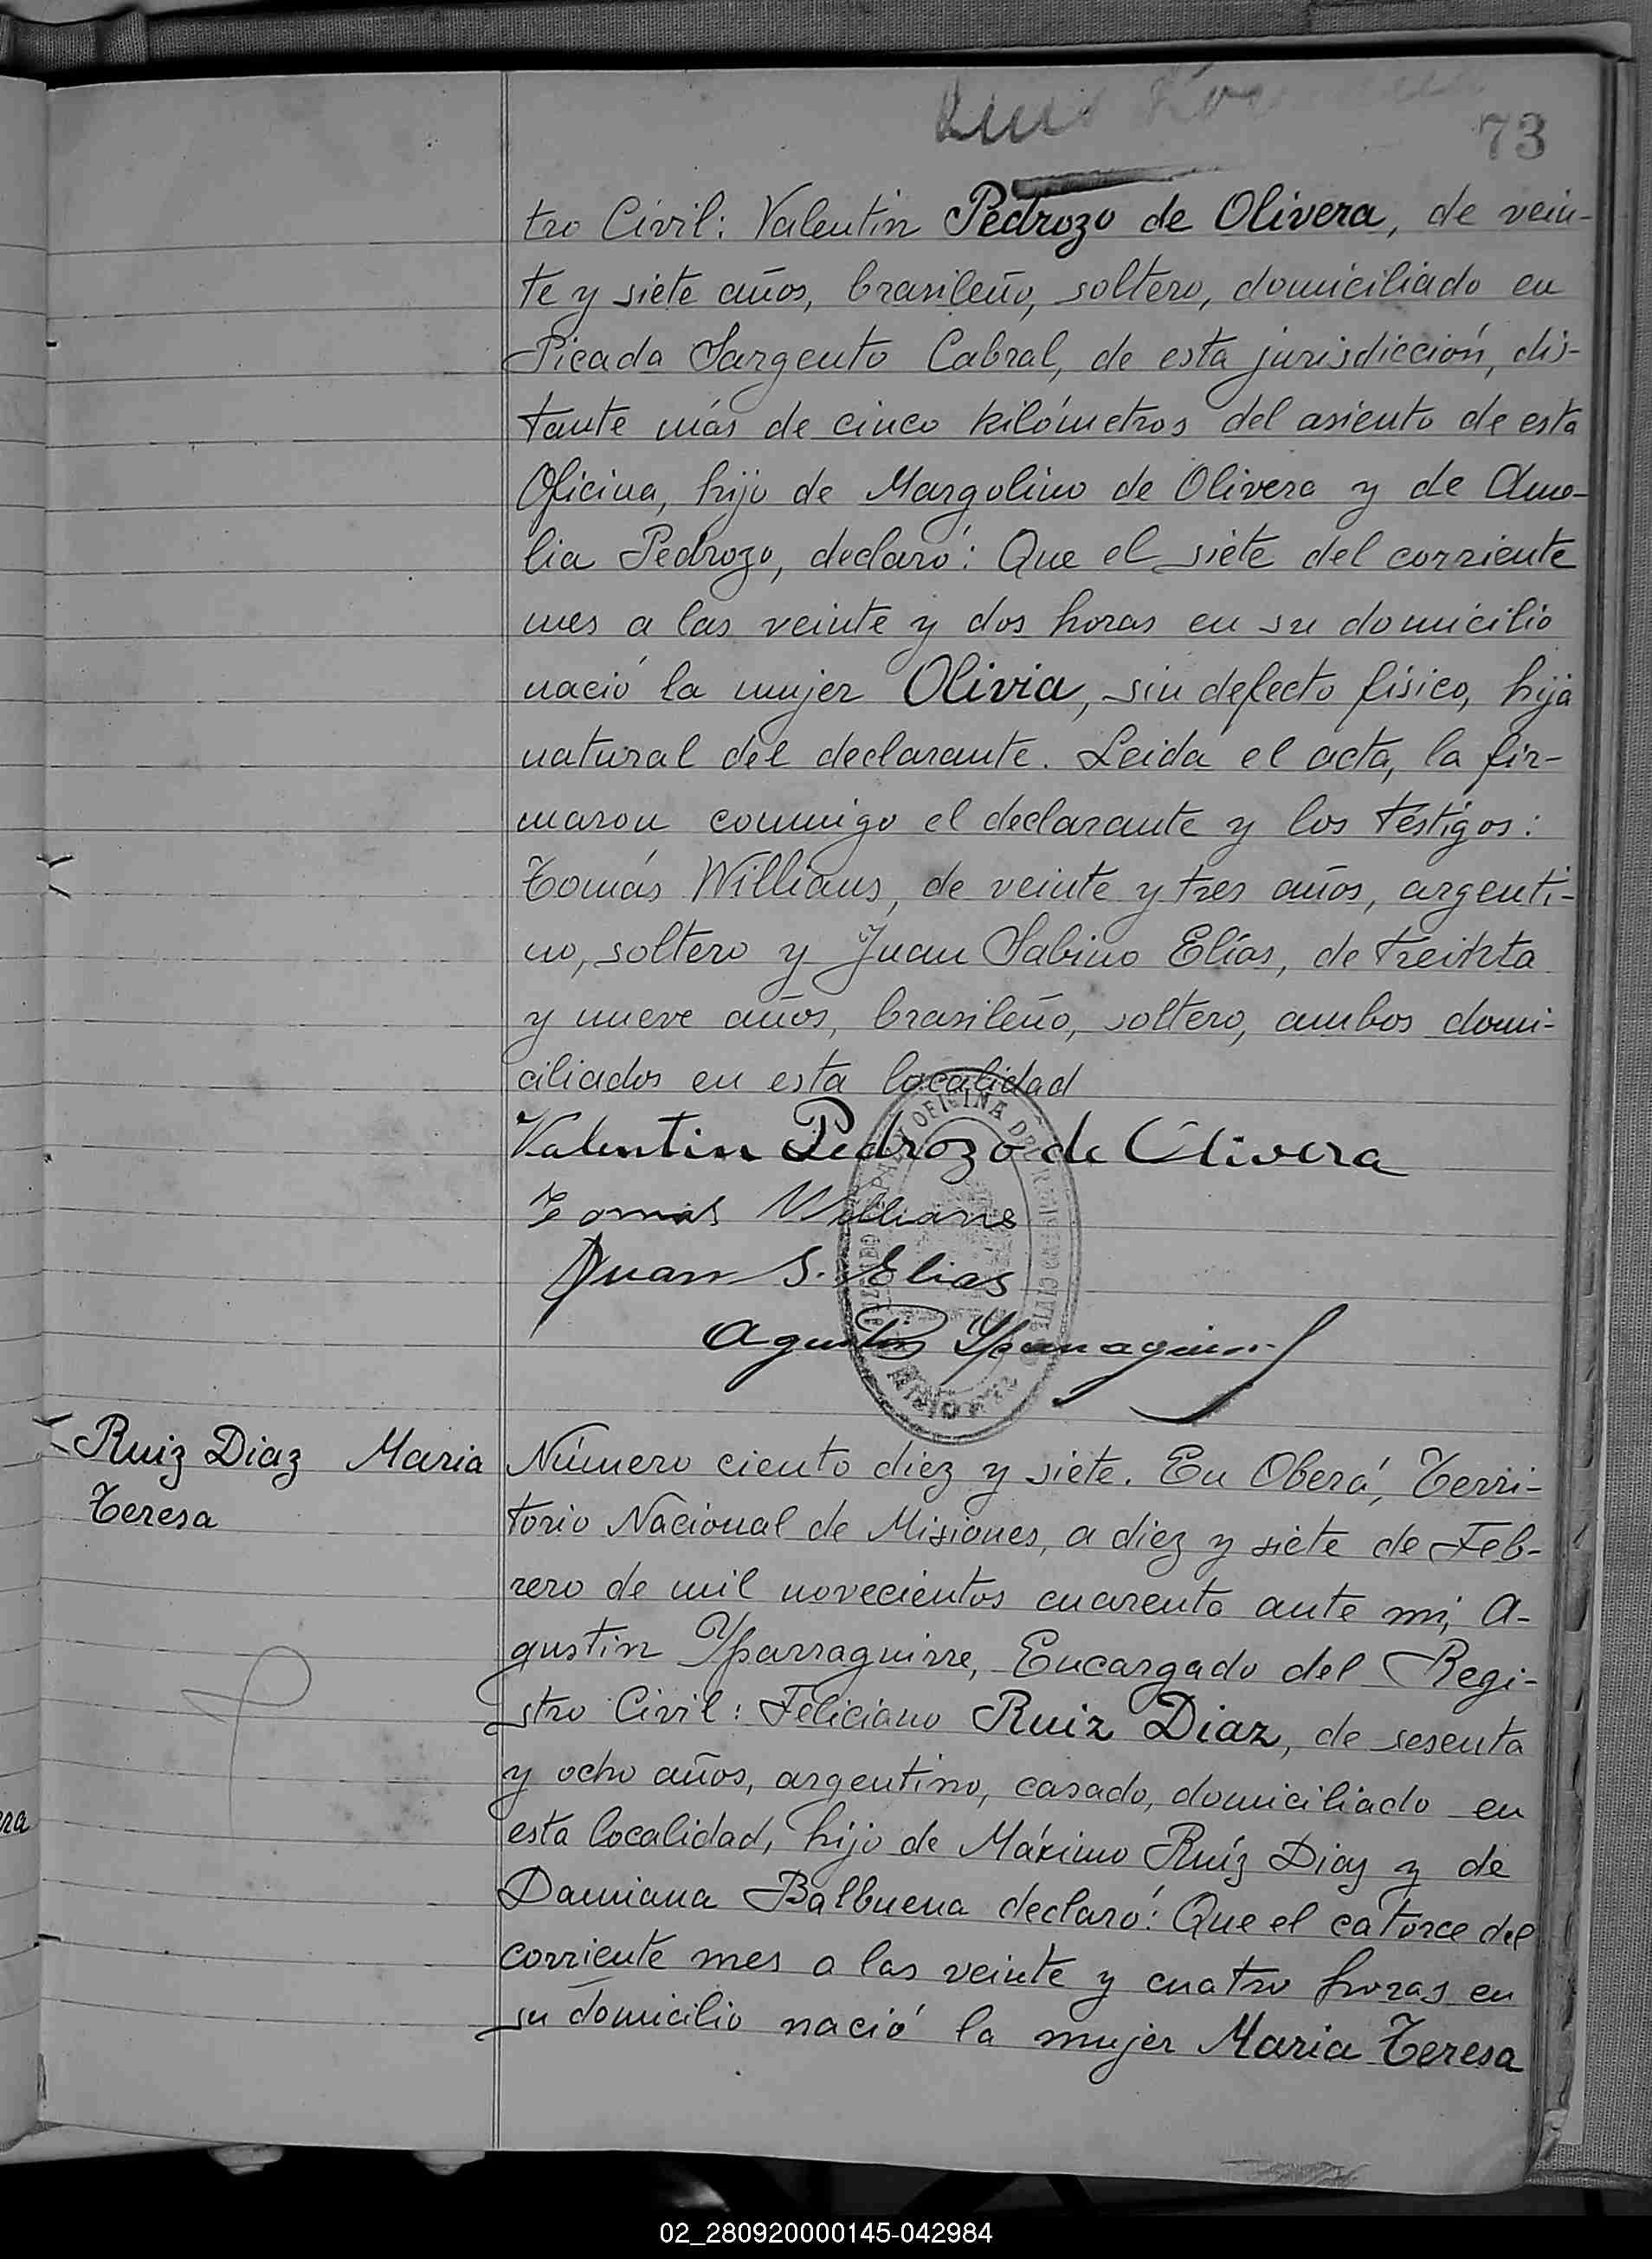 73
tro Civil: Valentin Pedrozo de Olivera, de vein-
te y siete años, brasileño, soltero, domiciliado en
Picada Sargento Cabral, de esta jurisdicción, dis-
tante más de cinco kilómetros del asiento de esta
Oficina, hijo de Margolino de Olivera y de Ame-
lia Pedrozo, declaró: Que el siete del corriente
mes a las veinte y dos horas en su domicilio
nació la mujer Olivia, sin defecto físico, hija
natural del declarante. Leida el acta, la fir-
maron conmigo el declarante y los testigos:
Tomás Willians, de veinte y tres años, argenti-
no, soltero y Juan Sabino Elías, de treinta
y nueve años, brasileño, soltero, ambos domi-
ciliados en esta localidad
OFICINA
Valentin Pedrozo de Olivera
Tomas Willians
Juan S. Elias
Agustin Yparraguirre
Ruiz Diaz Maria
Teresa
Número ciento diez y siete. En Oberá, Terri-
torio Nacional de Misiones, a diez y siete de Feb-
rero de mil novecientos cuarenta ante mi, A-
gustin Yparraguirre, Encargado del Regi-
stro Civil: Feliciano Ruiz Diaz, de sesenta
y ocho años, argentino, casado, domiciliado en
esta localidad, hijo de Máximo Ruíz Diaz y de
Damiana Balbuena declaró: Que el catorce del
corriente mes a las veinte y cuatro horas en
su domicilio nació la mujer Maria Teresa
02_280920000145-042984